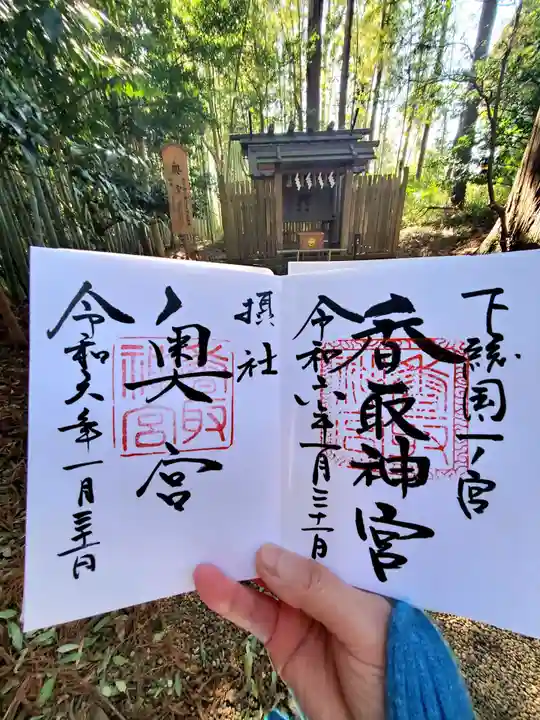 下総国一ノ宮
香取神宮
令和六年一月三十一日
摂社
奥宮
令和六年一月三十一日
香取
神宮
奥宮